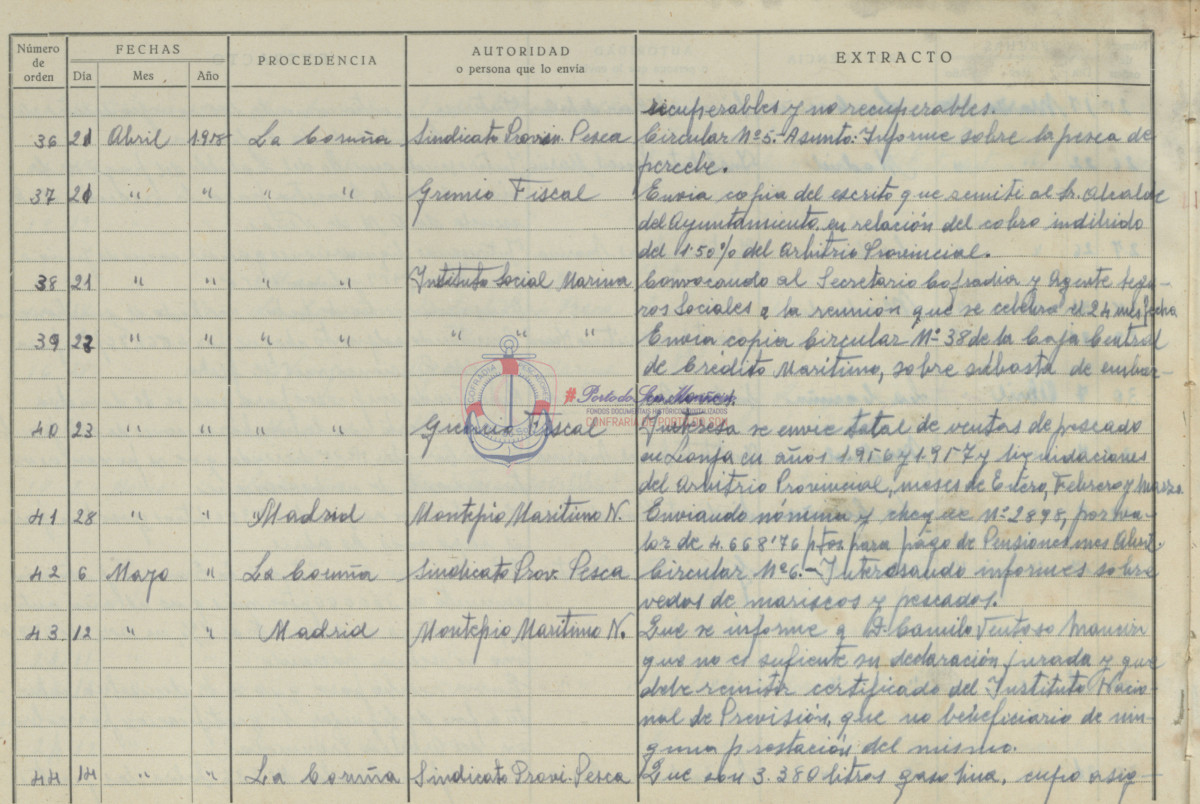 Número de orden FECHAS Día Mes Año PROCEDENCIA AUTORIDAD o persona que lo envía EXTRACTO
recuperables y no recuperables.
36 21 Abril 1.958 La Coruña Sindicato Provin. Pesca Circular Nº 5- Asunto: Informe sobre la pesca de
percebe.
37 21 " " " " Gremio Fiscal Envia copia del escrito que remiti al Sr. Alcalde
del Ayuntamiento, en relación del cobro indibido
del 1'50% del Arbitrio Provincial.
38 21 " " " " Instituto Social Marina Convocando al Secretario Cofradia y Agente Segu-
ros Sociales a la reunión que se celebra el 24 mes fecha
39 22 " " " " " " " Envia copia Circular Nº 38 de la Caja Central
de Crédito Maritimo, sobre subasta de embar-
COFRADIA PESCADORES
#PortodoSonMóvese
FONDOS DOCUMENTAIS HISTÓRICOS DIXITALIZADOS
CONFRARÍA DE PORTO DO SON
40 23 " " " " Gremio Fiscal Interesa se envie total de ventas de pescado
en Lonja en años 1.956 y 1.957 y liquidaciones
del Arbitrio Provincial, meses de Enero, Febrero y Marzo.
41 28 " " Madrid Montepio Maritimo N. Enviando nomina y cheque Nº 2898, por va-
lor de 4.668'76 ptas para pago de Pensiones mes Abril.
42 6 Mayo " La Coruña Sindicato Prov. Pesca Circular Nº 6.- Interesando informes sobre
vedas de mariscos y pescados.
43 12 " " Madrid Montepio Maritimo N. Que se informe a D. Camilo Ventoso
que no es sufiente su declaración jurada y que
debe remitir certificado del Instituto Nacio-
nal de Previsión, que no beneficiario de nin-
guna prestación del mismo.
44 14 " " La Coruña Sindicato Provi. Pesca Que son 3.380 litros gasolina, cupo asig-